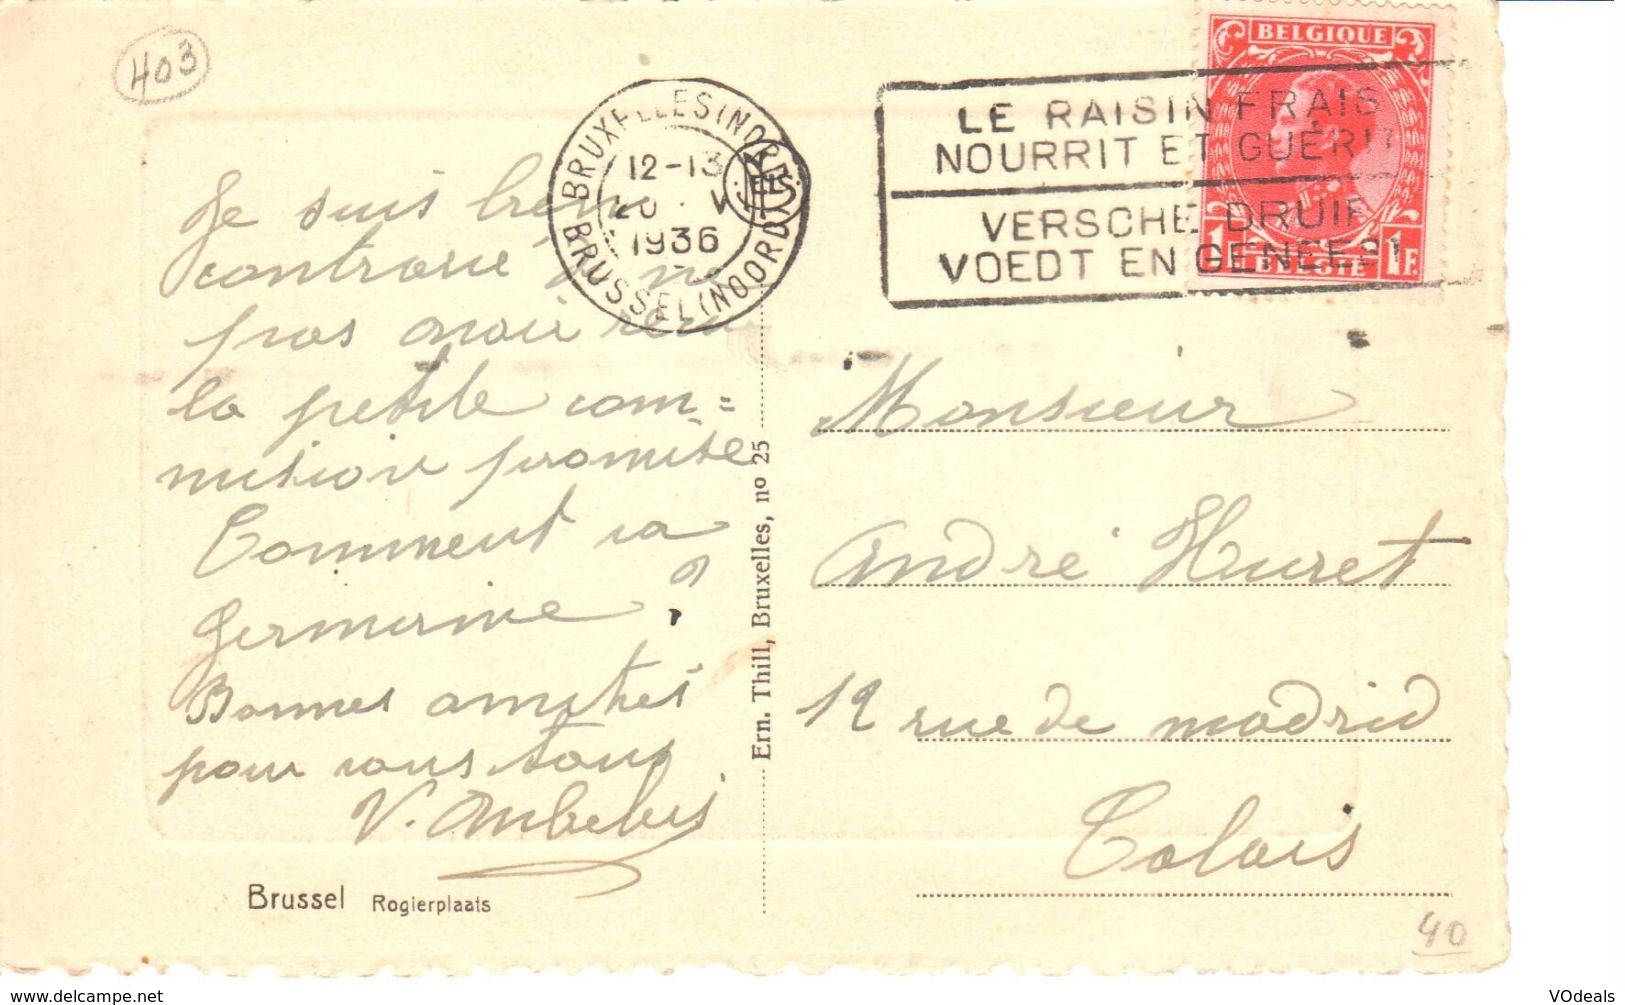 403
BELGIQUE
BRUXELLES (NORD)
12-13
20 V
1936
BRUSSEL (NOORD)
LE RAISIN FRAIS
NOURRIT ET GUÉRIT
VERSCHE DRUIF
VOEDT EN GENEEST
1F. BELGIË 1F.
Je suis bien
contrarié de ne
pas avoir reçu
la petite com=
mision promise
Comment va
Germaine ?
Bonnes amitiés
pour vous tous
V.
Brussel Rogierplaats
Ern. Thill, Bruxelles, no 25
Monsieur
André Huret
12 rue de madrid
Calais
40
www.delcampe.net
VOdeals